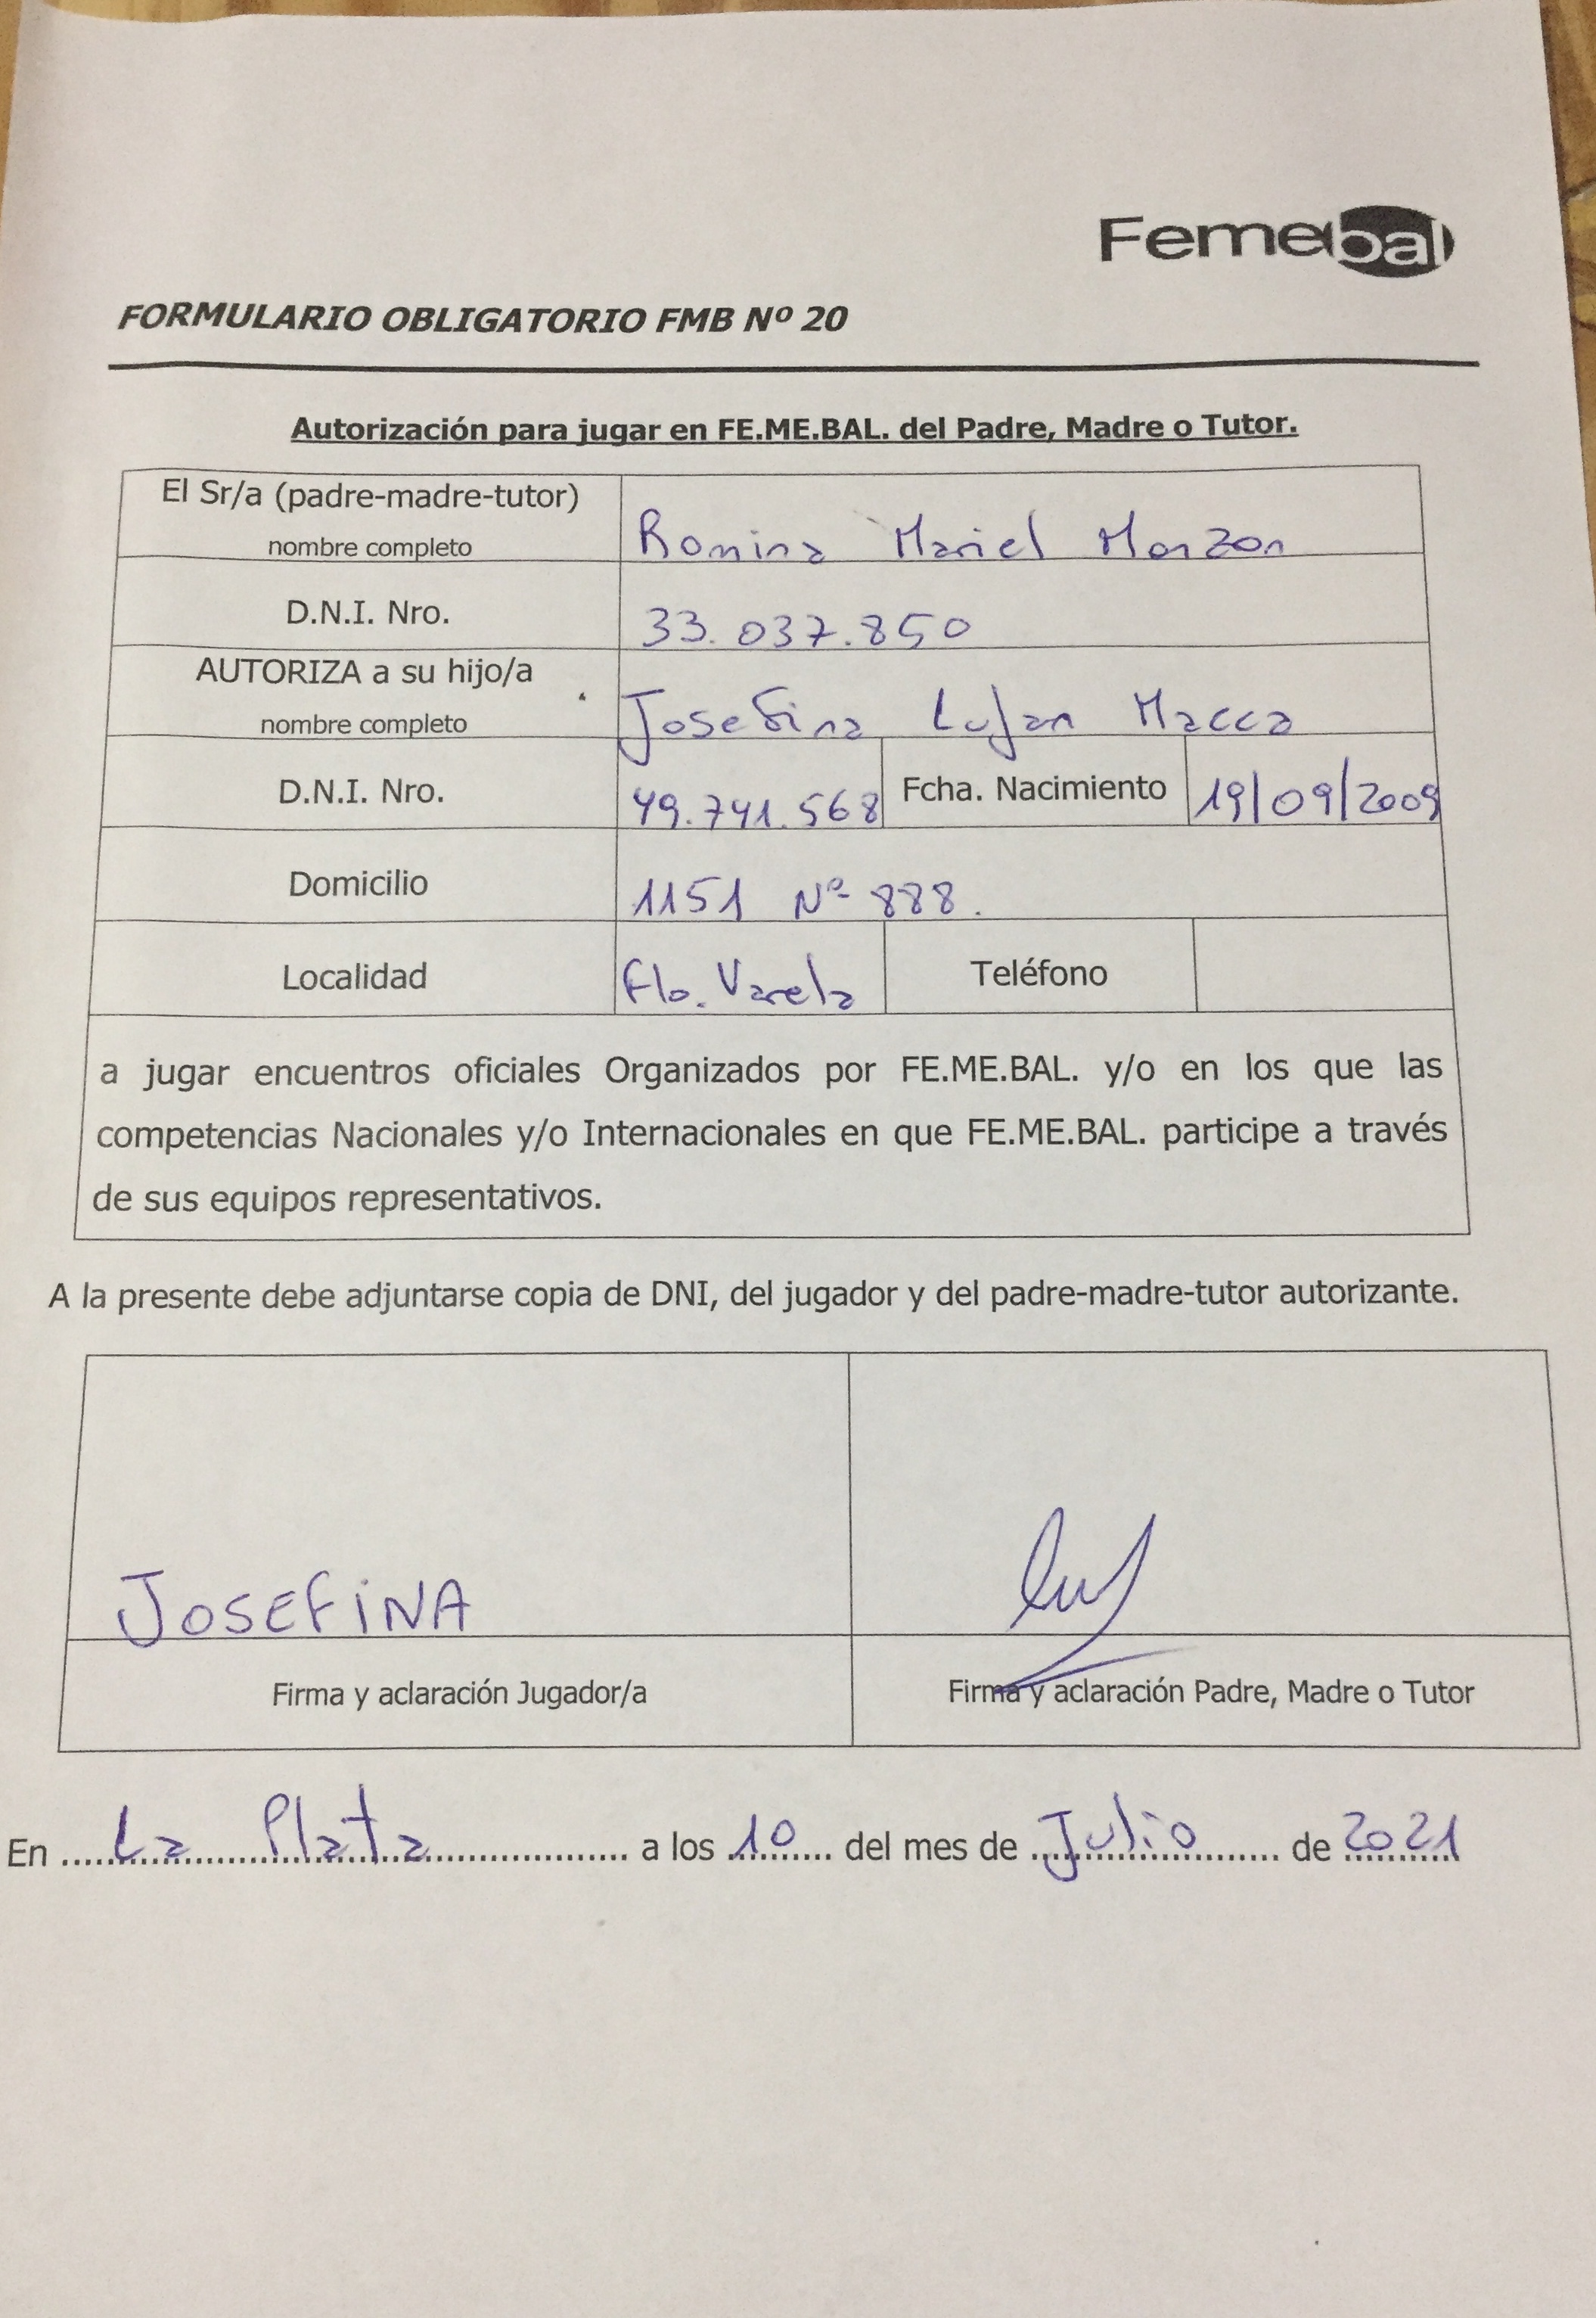 Femebal
FORMULARIO OBLIGATORIO FMB Nº 20
Autorización para jugar en FE.ME.BAL. del Padre, Madre o Tutor.
El Sr/a (padre-madre-tutor) nombre completo Romina Mariel Monzon
D.N.I. Nro. 33.037.850
AUTORIZA a su hijo/a nombre completo Josefina Lujan Macca
D.N.I. Nro. 49.741.568 Fcha. Nacimiento 19/09/2009
Domicilio 1151 Nº 888.
Localidad Flo. Varela Teléfono
a jugar encuentros oficiales Organizados por FE.ME.BAL. y/o en los que las
competencias Nacionales y/o Internacionales en que FE.ME.BAL. participe a través
de sus equipos representativos.
A la presente debe adjuntarse copia de DNI, del jugador y del padre-madre-tutor autorizante.
JOSEFiNA
Firma y aclaración Jugador/a Firma y aclaración Padre, Madre o Tutor
En La Plata a los 10 del mes de Julio de 2021